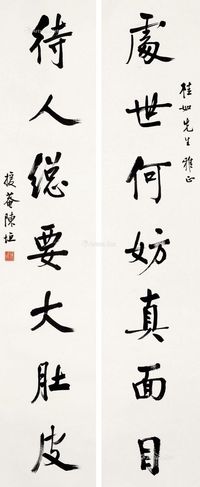 處世何妨真面目
桂如先生 雅正
待人總要大肚皮
援菴陳垣